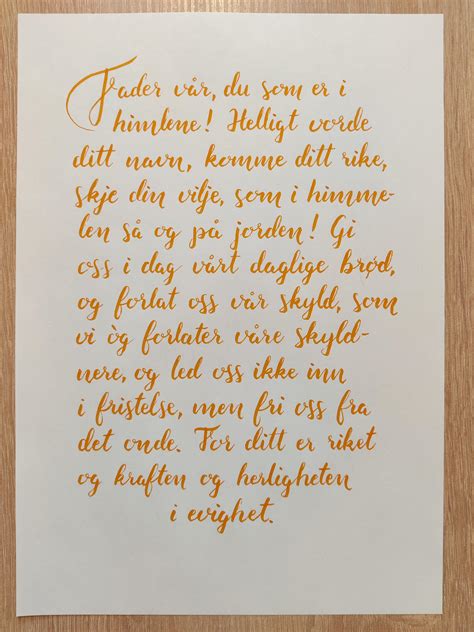 Fader vår, du som er i
himlene! Helligt vorde
ditt navn, komme ditt rike,
skje din vilje, som i himme-
len så og på jorden! Gi
oss i dag vårt daglige brød,
og forlat oss vår skyld, som
vi òg forlater våre skyld-
nere, og led oss ikke inn
i fristelse, men fri oss fra
det onde. For ditt er riket
og kraften og herligheten
i evighet.